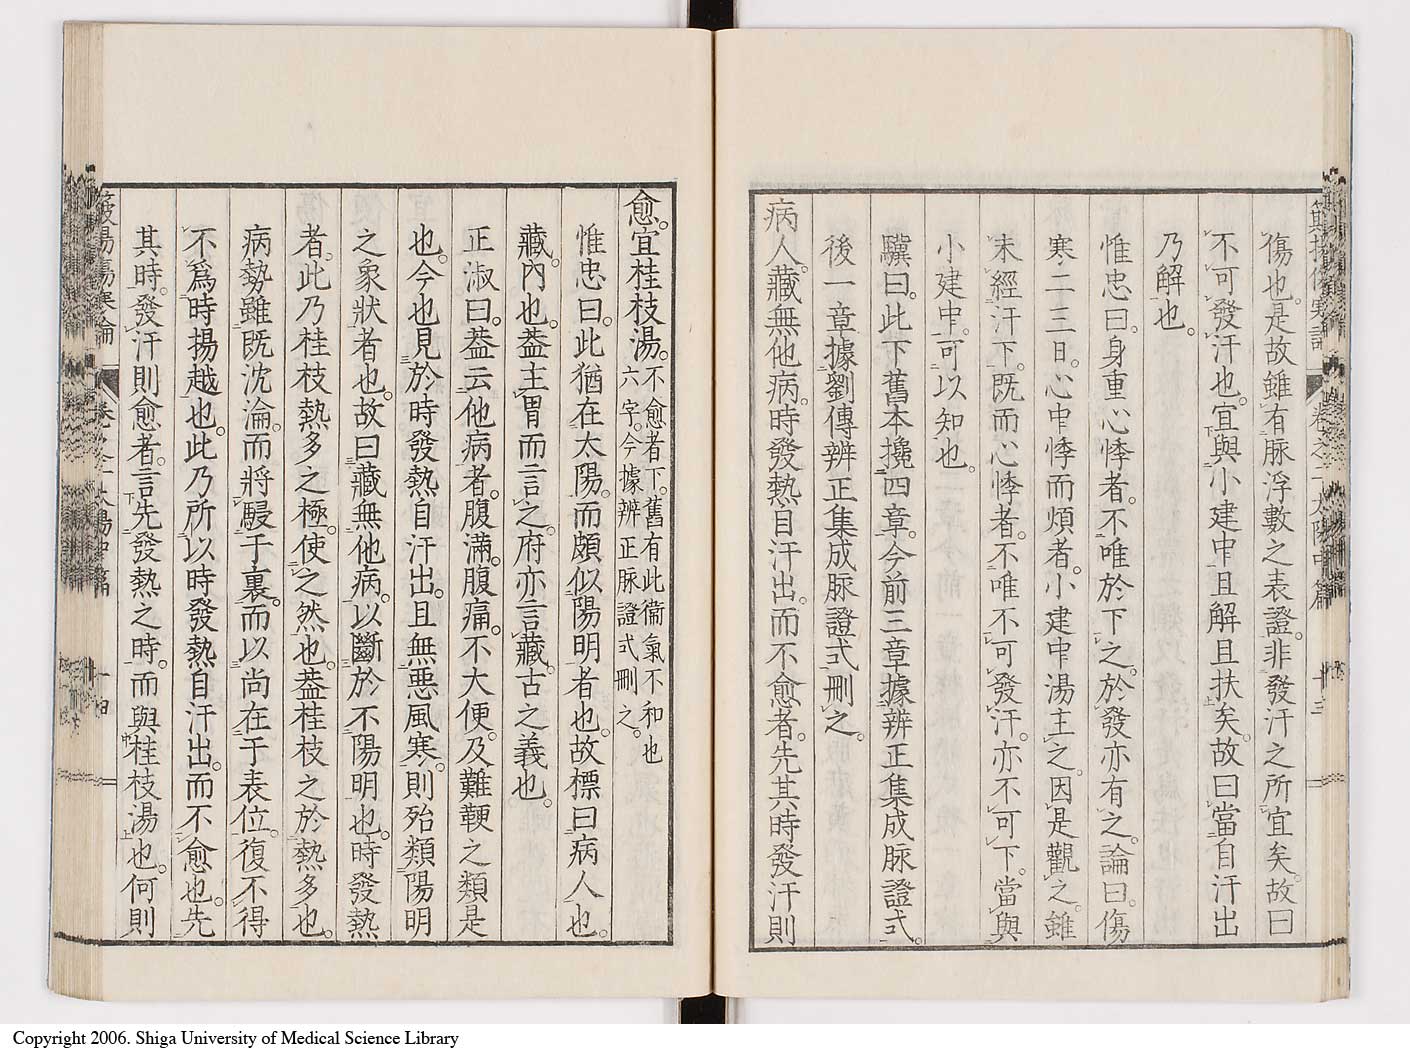 傷也。是故雖有脉浮數之表證。非發汗之所宜矣。故曰
不可發汗也。宜與小建中且解且扶矣。故曰當自汗出
乃解也。
惟忠曰。身重心悸者。不唯於下之。於發亦有之。論曰。傷
寒二三日。心中悸而煩者。小建中湯主之。因是觀之。雖
未經汗下。既而心悸者。不唯不可發汗。亦不可下。當與
小建中。可以知也。
驥曰。此下舊本攙四章。今前三章據辨正集成脉證式。
後一章據劉傳辨正集成脉證式刪之。
病人。藏無他病。時發熱自汗出。而不愈者。先其時發汗則
愈。宜桂枝湯。不愈者下。舊有此衞氣不和也
六字。今據辨正脉證式刪之。
惟忠曰。此猶在太陽。而頗似陽明者也。故標曰病人也。
藏。內也。葢主胃而言之。府亦言藏。古之義也。
正淑曰。葢云他病者。腹滿。腹痛。不大便。及難鞕之類是
也。今也見於時發熱自汗出。且無惡風寒。則殆類陽明
之象狀者也。故曰藏無他病。以斷於不陽明也。時發熱
者。此乃桂枝熱多之極。使之然也。葢桂枝之於熱多也。
病勢雖既沈淪。而將駸于裏。而以尚在于表位。復不得
不爲時揚越也。此乃所以時發熱自汗出。而不愈也。先
其時。發汗則愈者。言先發熱之時。而與桂枝湯也。何則
太陽中篇
十三
傷寒論
卷之
十四